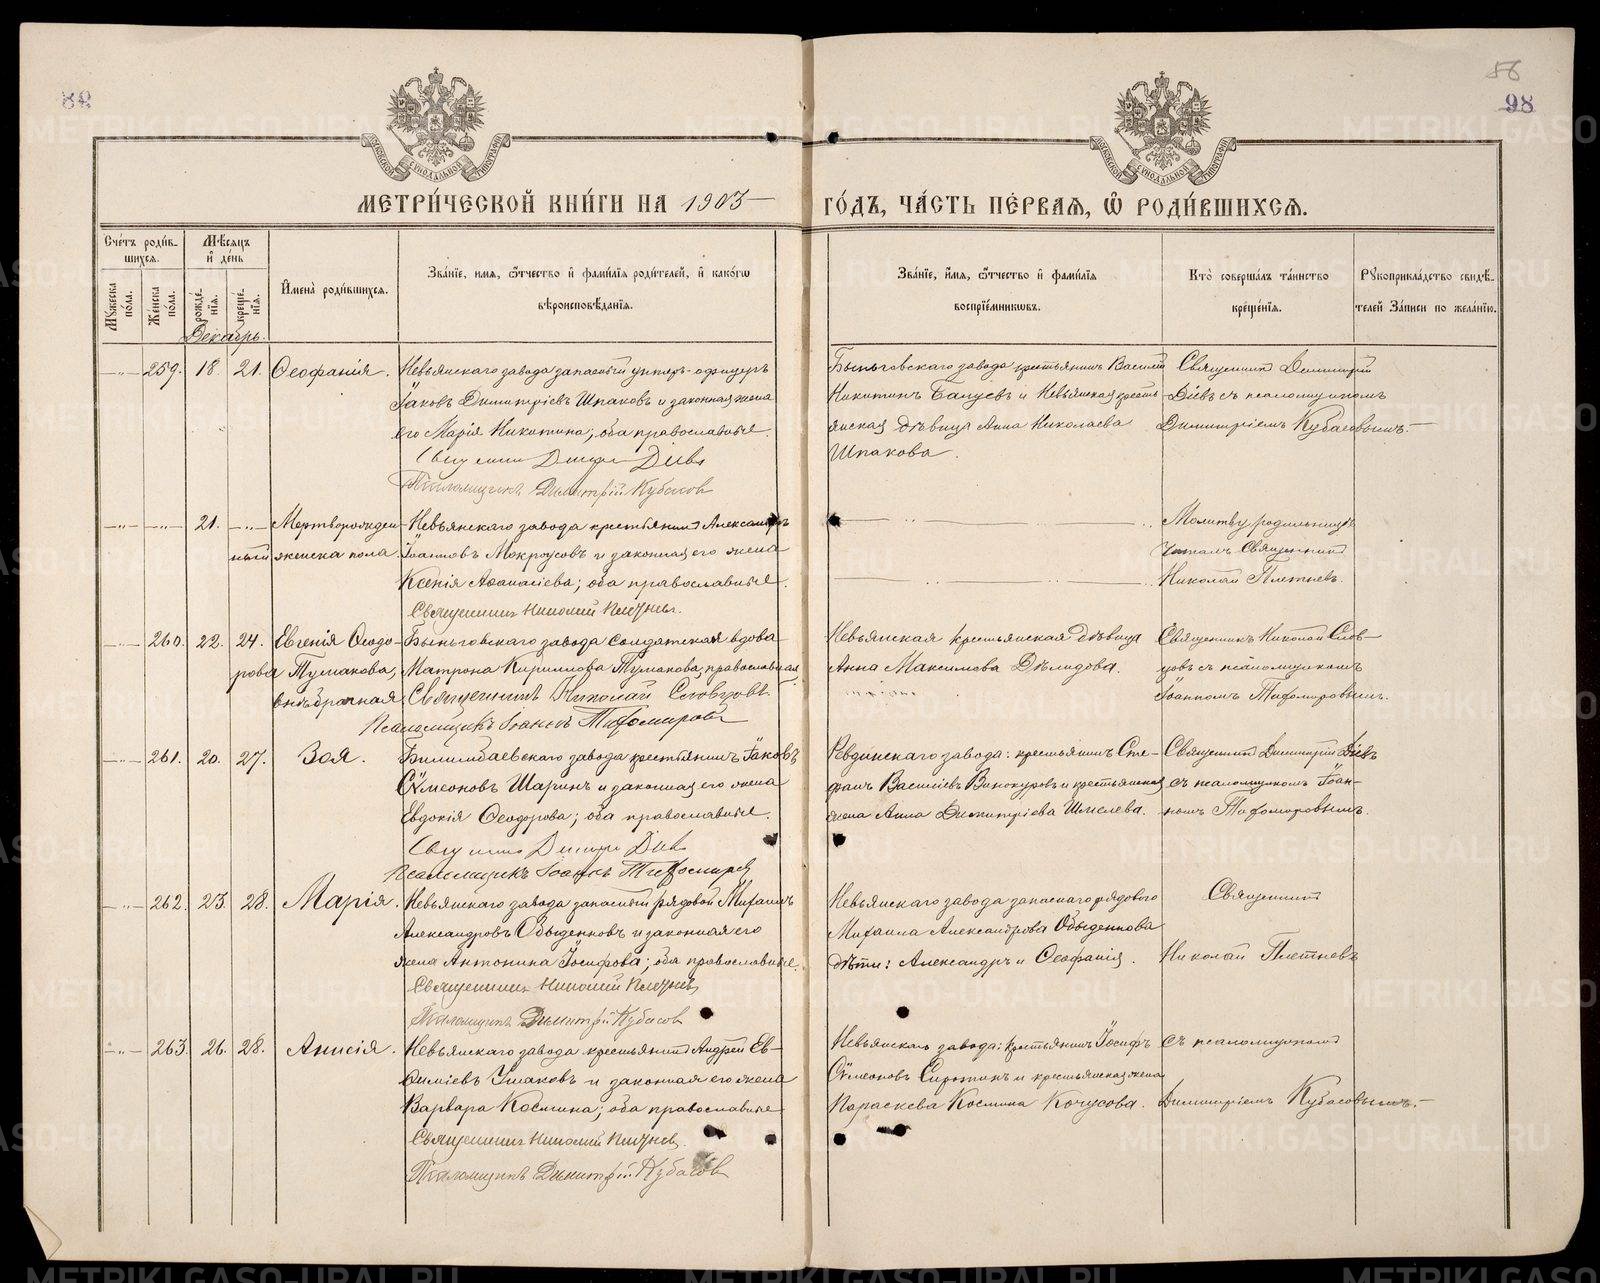 98
56
98
МОСКОВСКОЙ СИНОДАЛЬНОЙ ТИПОГРАФІИ
МОСКОВСКОЙ СИНОДАЛЬНОЙ ТИПОГРАФІИ
МЕТРИ́ЧЕСКОЙ КНИ́ГИ НА 1903
ГО́ДЪ, ЧА́СТЬ ПЕ́РВАЯ, Ѡ҆ РОДИ́ВШИХСЯ.
Сче́тъ роди́в-
шихся.
Мѣ́сяцъ
и҆ де́нь
Мꙋ́жеска по́ла.
Же́нска по́ла.
рожде́нїя.
креще́нїя.
И҆мена̀ роди́вшихся.
Зва́нїе, имя, ѻ҆́тчество и҆ фами́лїя роди́телей, и҆ како́гѡ
вѣроисповѣ́данїя.
Зва́нїе, и҆́мя, ѻ҆́тчество и҆ фами́лїя
воспрїе́мникѡвъ.
Кто̀ соверша́лъ та́инство
креще́нїя.
Рꙋкоприкла́дство свидѣ́-
телей за́писи по жела́нїю.
Декабрь.
259. 18. 21. Ѳеофанія.
Невьянскаго завода запасный унтеръ-офицеръ
Іаковъ Димитріевъ Шпаковъ и законная жена
его Марія Никитина; оба православные.
Димитрій Кубасовъ
Быньговскаго завода крестьянинъ Василій
Никитинъ и Невьянская кресть-
янская дѣвица Анна Николаева
Шпакова.
Священникъ Димитрій
Діевъ съ псаломщикомъ
Димитріемъ Кубасовымъ.
21. Мертворожден-
ный женска пола.
Невьянскаго завода крестьянинъ Александръ
Іоанновъ Мокроусовъ и законная его жена
Ксенія Аѳанасіева; оба православные.
Священникъ Николай Плетневъ.
Молитву родильницѣ
читалъ Священникъ
Николай Плетневъ.
260. 22. 24. Евгенія Ѳеодо-
рова Тумакова,
внѣбрачная
Быньговскаго завода солдатская вдова
Матрона Кириллова Тумакова, православная
Священникъ Николай Словцовъ
Псаломщикъ Іоаннъ Тихомировъ
Невьянская крестьянская дѣвица
Анна Максимова Дѣлидова.
Священникъ Николай Слов-
цовъ съ псаломщикомъ
Іоанномъ Тихомировымъ.
261. 20. 27. Зоя.
Билимбаевскаго завода крестьянинъ Іаковъ
Сѵмеоновъ Шаринъ и законная его жена
Евдокія Ѳеодорова; оба православные.
Псаломщикъ Іоаннъ Тихомировъ
Ревдинскаго завода: крестьянинъ Сте-
фанъ Василіевъ Винокуровъ и крестьянская
жена Анна Димитріева Шмелева.
Священникъ Димитрій Діевъ
съ псаломщикомъ Іоан-
номъ Тихомировымъ.
262. 23. 28. Марія.
Невьянскаго завода запасный рядовой Михаилъ
Александровъ Обыденновъ и законная его
жена Антонина Іосифова; оба православные.
Священникъ Николай Плетневъ
Псаломщикъ Димитрій Кубасовъ
Невьянскаго завода запаснаго рядового
Михаила Александрова Обыденнова
дѣти: Александръ и Ѳеофанія.
Священникъ
Николай Плетневъ
263. 26. 28. Анисія.
Невьянскаго завода крестьянинъ Андрей Ев-
ѳиміевъ Ушаковъ и законная его жена
Варвара Космина; оба православные
Священникъ Николай Плетневъ.
Псаломщикъ Димитрій Кубасовъ
Невьянскаго завода: крестьянинъ Іосифъ
Сѵмеоновъ Сиротинъ и крестьянская жена
Параскева Космина Кочусова.
съ псаломщикомъ
Димитріемъ Кубасовымъ.
METRIKI.GASO-URAL.RU